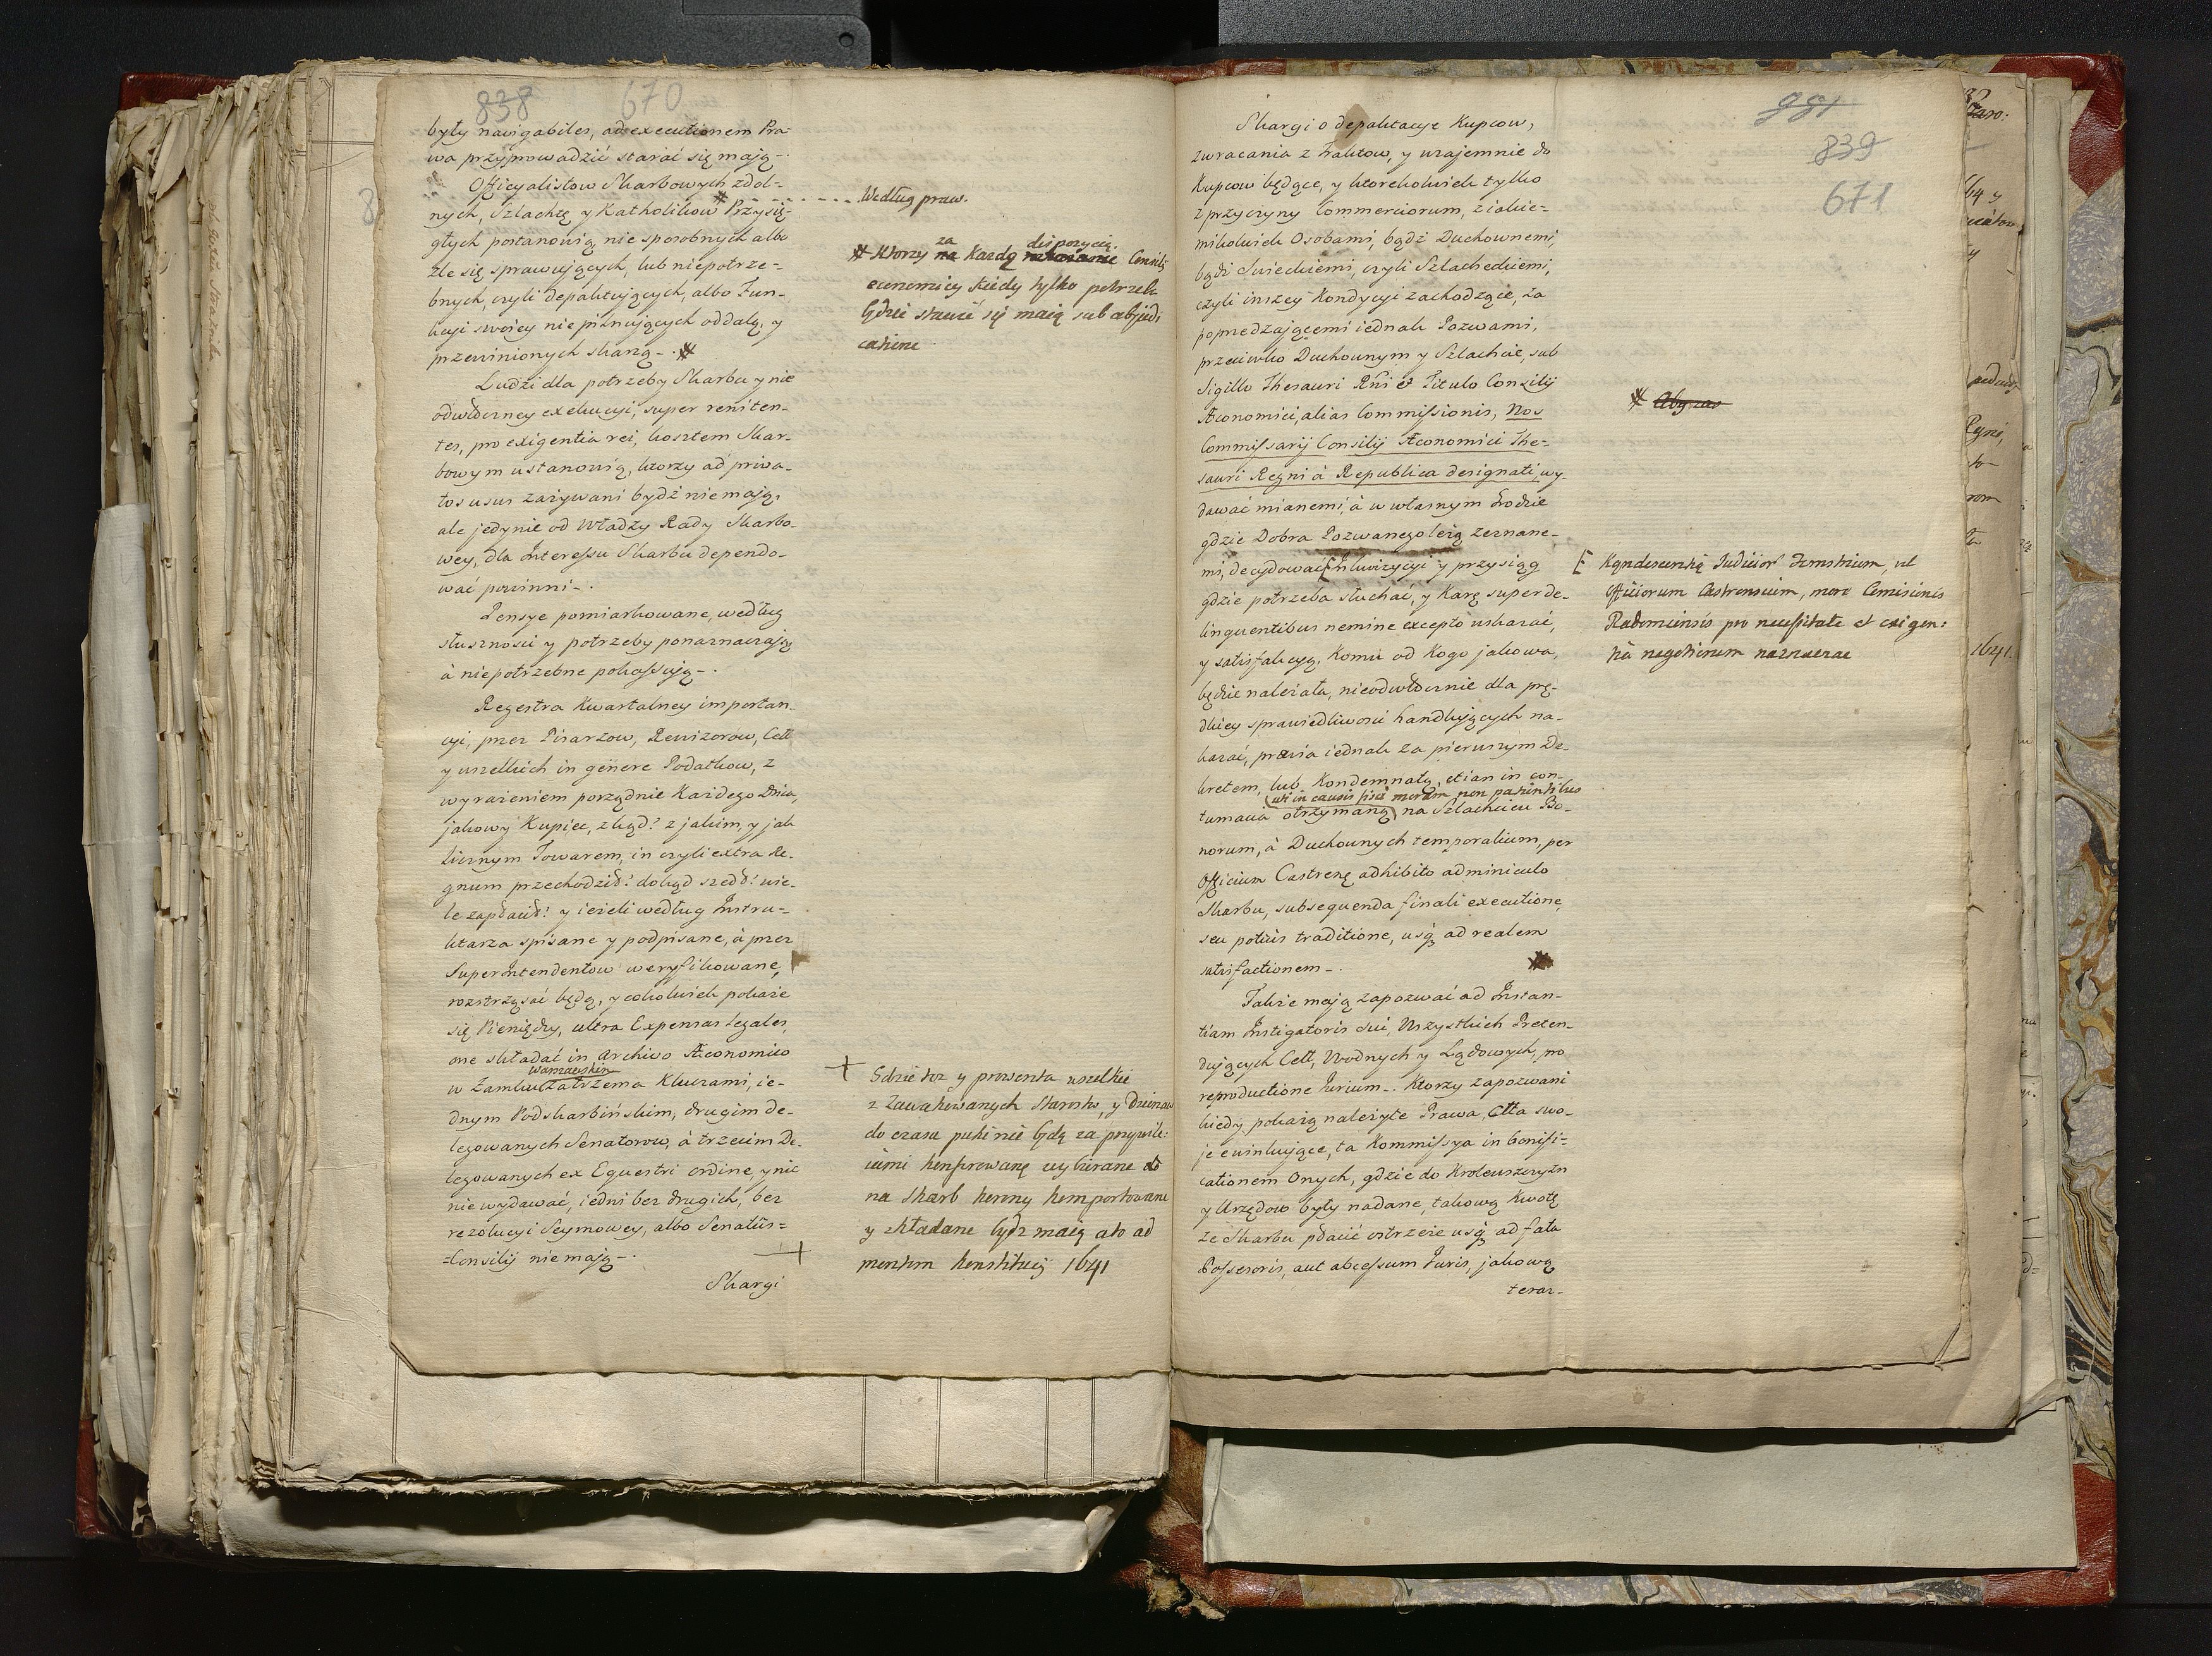 838 670
były navigabiles, ad executionem Pra-
wa przyprowadzić starać się mają-.
Officyalistow Skarbowych zdol-
nych, Szlachtę y Katholikow Przysię-
głych postanowią, nie sposobnych albo
źle się sprawujących, lub niepotrze-
bnych, czyli depaktujących, albo Fun-
kcyi swoiey nie pilnujących oddalą, y
przewinionych skarzą-.
Ludzi dla potrzeby Skarbu y nie
odwłoczney exekucyi, super reniten-
tes, pro exigentia rei, kosztem Skar-
bowym ustanowią, ktorzy ad priva-
tos usus zażywani bydź nie mają,
ale jedynie od Władzy Rady Skarbo-
wey, dla Interessu Skarbu dependo-
wać powinni-.
Pensye pomiarkowane, według
słuszności y potrzeby ponaznaczają
à niepotrzebne pokassują-.
Regestra Kwartalney importan-
cyi, przez Pisarzow, Rewizorow, Cełł
y wszelkich in genere Podatkow, z
wyrażeniem porządnie Każdego Dnia,
jakowy Kupiec, zkąd? z jakim, y jak
licznym Towarem, in czyli extra Re-
gnum przechodził? dokąd szedł? wie-
le zapłacił? y ieżeli według Instru-
ktarza spisane y podpisane, à przez
Superintendentow weryfikowane,
roztrząsać będą, y cokolwiek pokaże
się Pieniędzy, ultra Expensas legales,
one składać in Archivo Æconomico
w Zamku warszawskim zatrzema Kluczami, ie-
dnym Podskarbińskim, drugim de-
legowanych Senatorow, à trzecim De-
legowanych ex Equestri ordine, y nic
nie wydawać, iedni bez drugich, bez
rezolucyi Seymowey, albo Senatûs-
-Consilij nie mają-.
Skargi
Według praw.
Ktorzy na za Kazdą dispozycią. Consilij
economicy kiedy tylko potrzeb
będzie stawić się maią sub abjudi
catione
Gdzie też y prowenta wszelkie
z Zawakowanych Starostw, y Dzierzaw
do czasu puki nie będą za przywile:
iami konferowane wybierane
na Skarb koronny komportowane
y składane bydz maią ato ad
mentem konstitucij 1641
981
839
671
Skargi o depaktacye Kupcow,
zwracania z Traktow, y wzajemnie do
Kupcow będące, y ktorekolwiek tylko
z przyczyny Commerciorum, z iakie-
mikolwiek Osobami, bądź Duchownemi,
bądź Swieckiemi, czyli Szlacheckiemi,
czyli inszey Kondycyi zachodzące, za
poprzedzającemi iednak Pozwami,
przeciwko Duchownym y Szlachcie, sub
Sigillo Thesauri Rñi et Titulo Consilij
Æconomici, alias Commissionis, Nos
Commissarij Consilij Æconomici The-
sauri Regni à Republica designati wy-
dawać mianemi, à w własnym Grodzie
gdzie Dobra Pozwanego leżą zeznane-
mi, decydować Inkwizycyi y przysiąg
gdzie potrzeba słuchać, y Karę super de-
linquentibus nemine excepto wskazać,
y satisfakcyą, Komu od Kogo jakowa,
będzie należała, nieodwłocznie dla prę-
dkiey sprawiedliwości handlujących na-
kazać, prævia iednak za pierwszym De-
kretem, lub Kondemnatą, etiam in con-
(uti in causis fisci moram non patientibus
tumacia otrzymaną) na Szlachcicu Bo-
norum, à Duchownych temporalium, per
Officium Castrense adhibito adminiculo
Skarbu, subsequenda finali executione,
seu potiùs traditione, usq; ad realem
satisfactionem-.
Także mają zapozwać ad Instan-
tiam Instigatoris sui, Wszystkich Preten-
dujących Cełł, Wodnych y Lądowych, pro
reproductione Jurium-. Ktorzy zapozwani
kiedy pokażą należyte Prawa, Cłła swo-
je ewinkujące, ta Kommissya in bonifi-
cationem Onych, gdzie do Kroleuszczyzn
y Urzędow były nadane, takową Kwotę
ze Skarbu płacić ostrzeże usq; ad fata
Possessoris, aut abcessum Juris, jakową
teraz-
Aby zas
Kondescensią Judicior Terrestrium, vel
Officiorum Castrensium, more Comisionis
Radomiensis pro necessitate et exigen:
tia negotiorum naznaczac
1641.